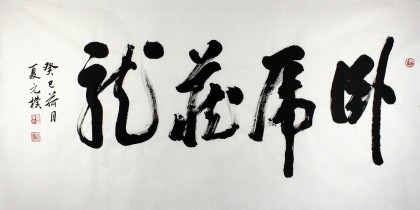 卧虎藏龙
癸巳荷月
夏元模